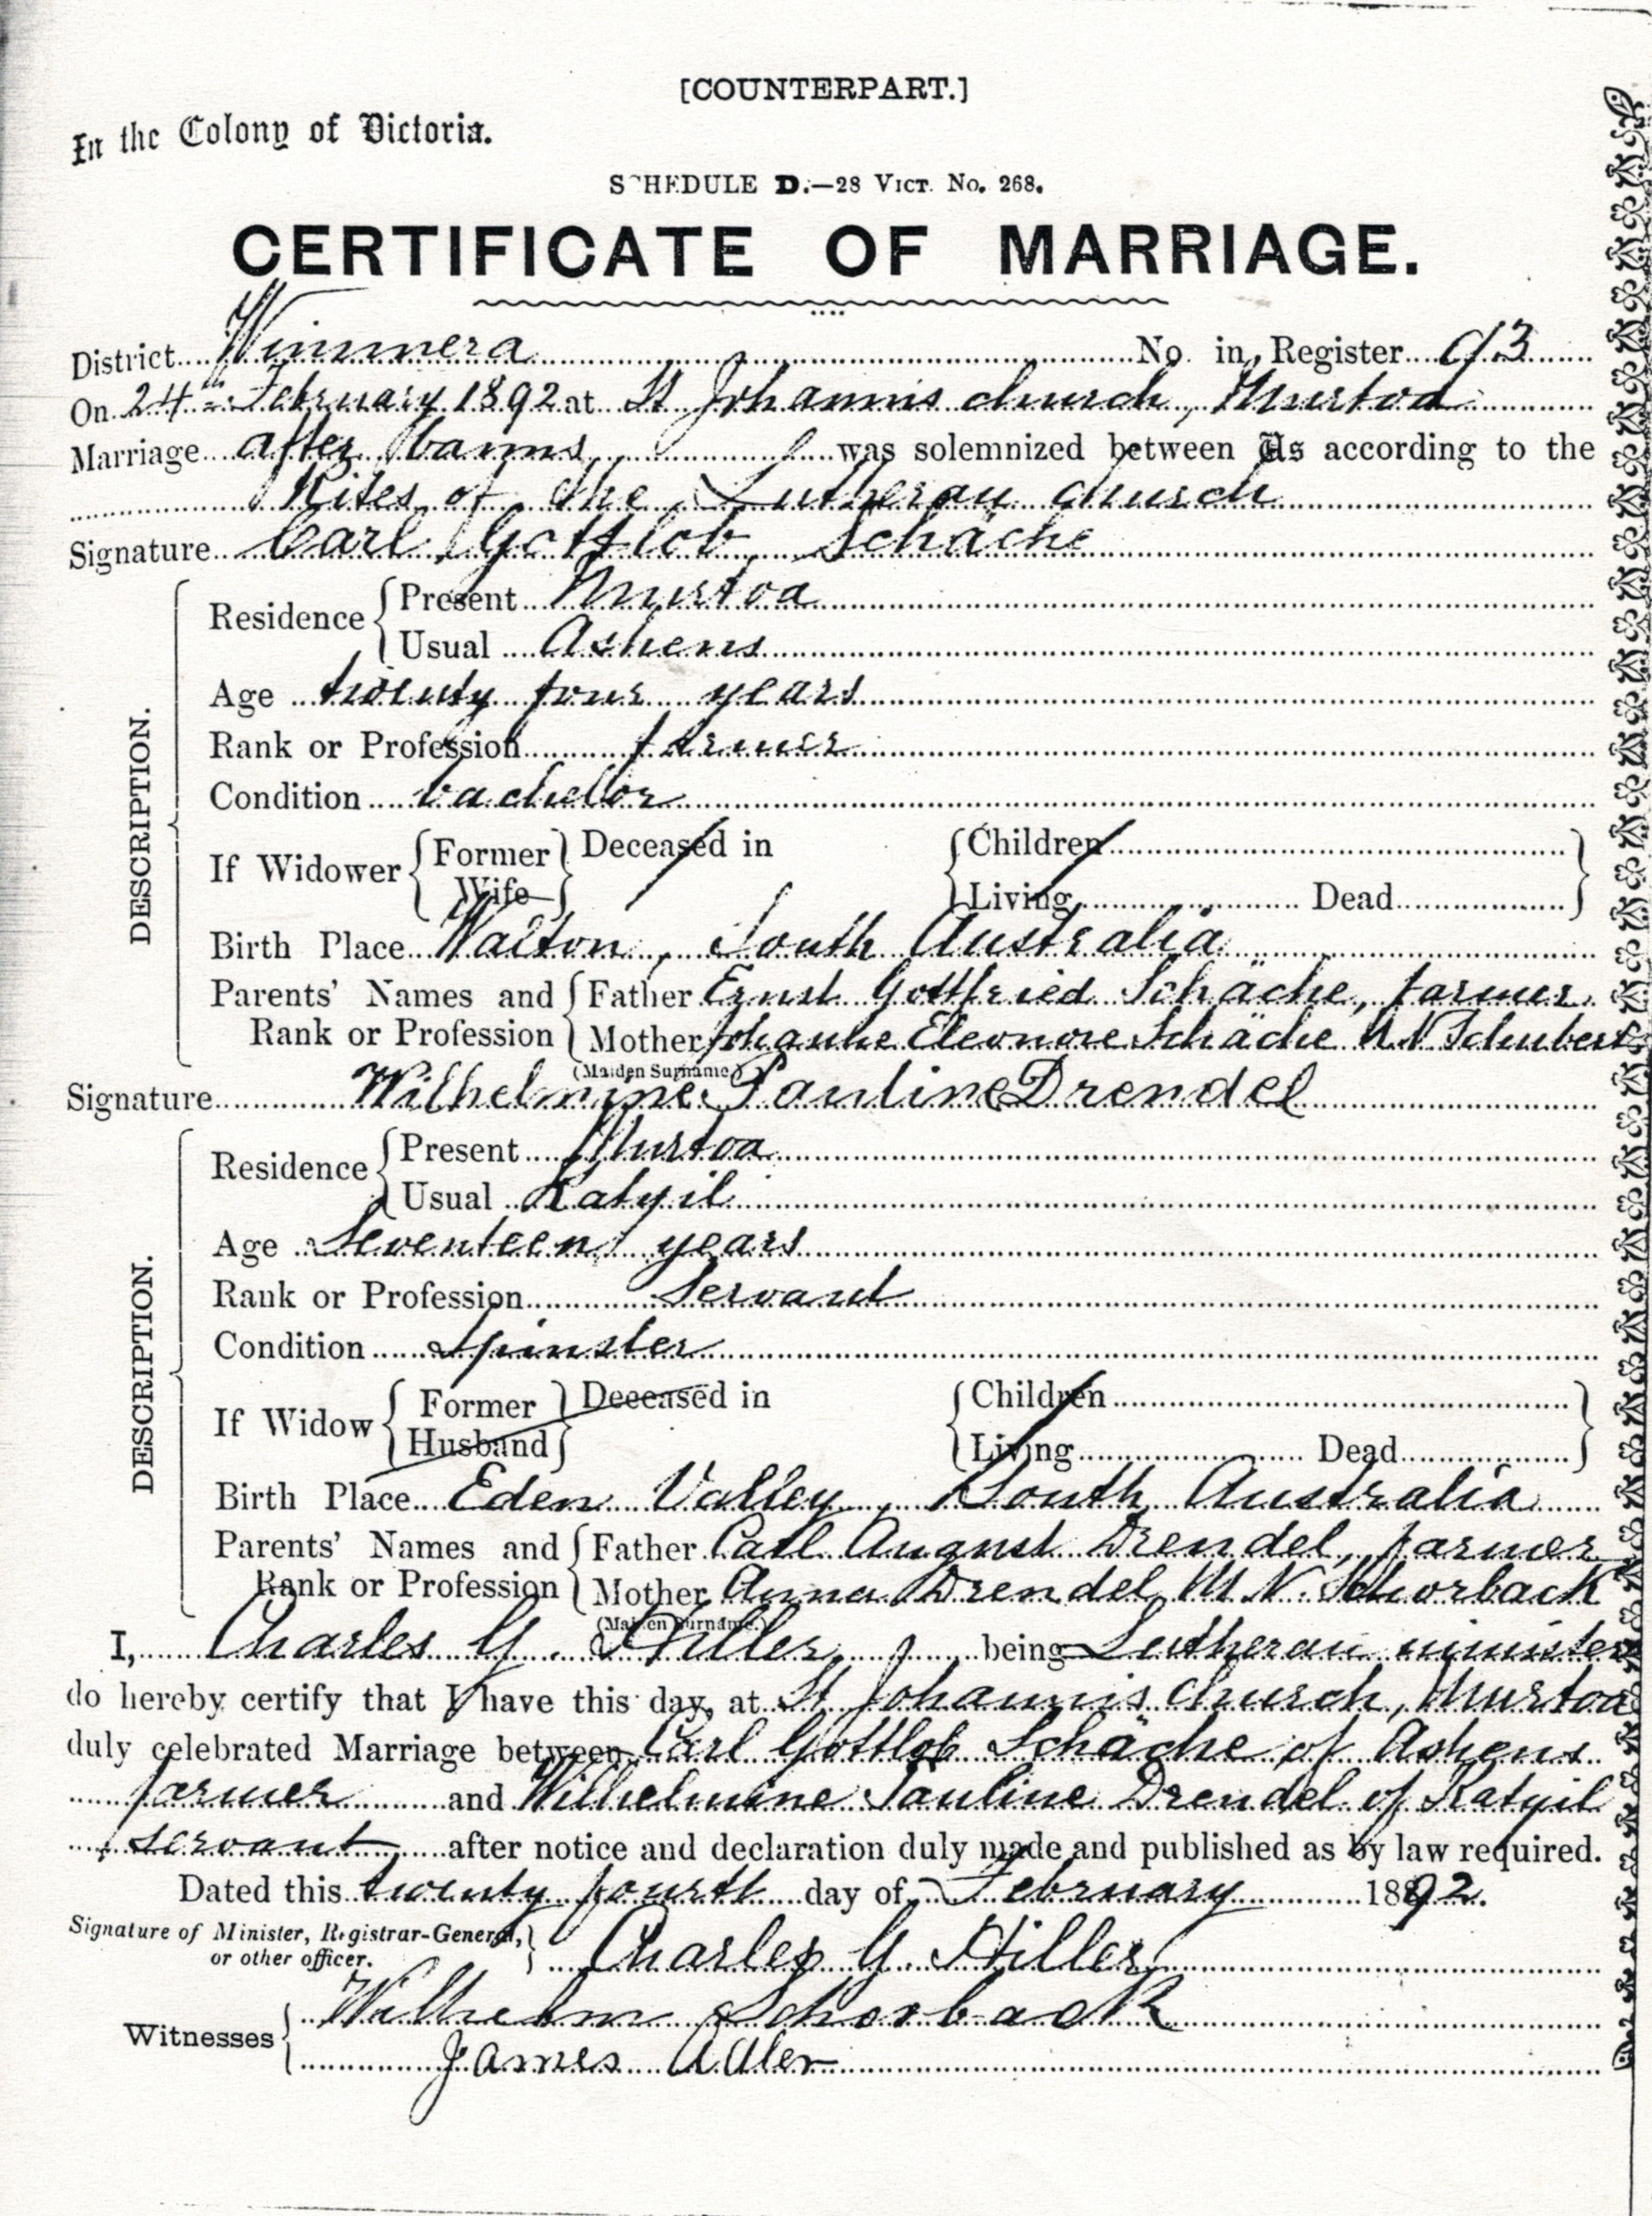 [COUNTERPART.]
In the Colony of Victoria.
SCHEDULE D.—28 VICT. No. 268.
CERTIFICATE OF MARRIAGE.
District Wimmera No. in Register 93
On 24th February 1892 at St Johannis church, Murtoa
Marriage after banns was solemnized between Us according to the
Rites of the Lutheran church
Signature Carl Gottlob Schäche
DESCRIPTION.
Residence { Present Murtoa
Usual Ashens
Age twenty four years
Rank or Profession farmer
Condition bachelor
If Widower { Former Wife } Deceased in { Children
Living Dead }
Birth Place Walton, South Australia
Parents' Names and Rank or Profession { Father Ernst Gottfried Schäche, farmer
Mother Johanne Eleonore Schäche M.N. Schubert
(Maiden Surname)
Signature Wilhelmine Pauline Drendel
DESCRIPTION.
Residence { Present Murtoa
Usual Katyil
Age Seventeen years
Rank or Profession Servant
Condition Spinster
If Widow { Former Husband } Deceased in { Children
Living Dead }
Birth Place Eden Valley, South Australia
Parents' Names and Rank or Profession { Father Carl August Drendel, farmer
Mother Anna Drendel M.N. Schorback
(Maiden Surname.)
I, Charles G. Hiller, being Lutheran minister
do hereby certify that I have this day, at St Johannis church, Murtoa
duly celebrated Marriage between Carl Gottlob Schäche of Ashens
farmer and Wilhelmine Pauline Drendel of Katyil
servant after notice and declaration duly made and published as by law required.
Dated this twenty fourth day of February 1892.
Signature of Minister, Registrar-General, or other officer. } Charles G. Hiller
Witnesses { Wilhelm Schorback
James Adler